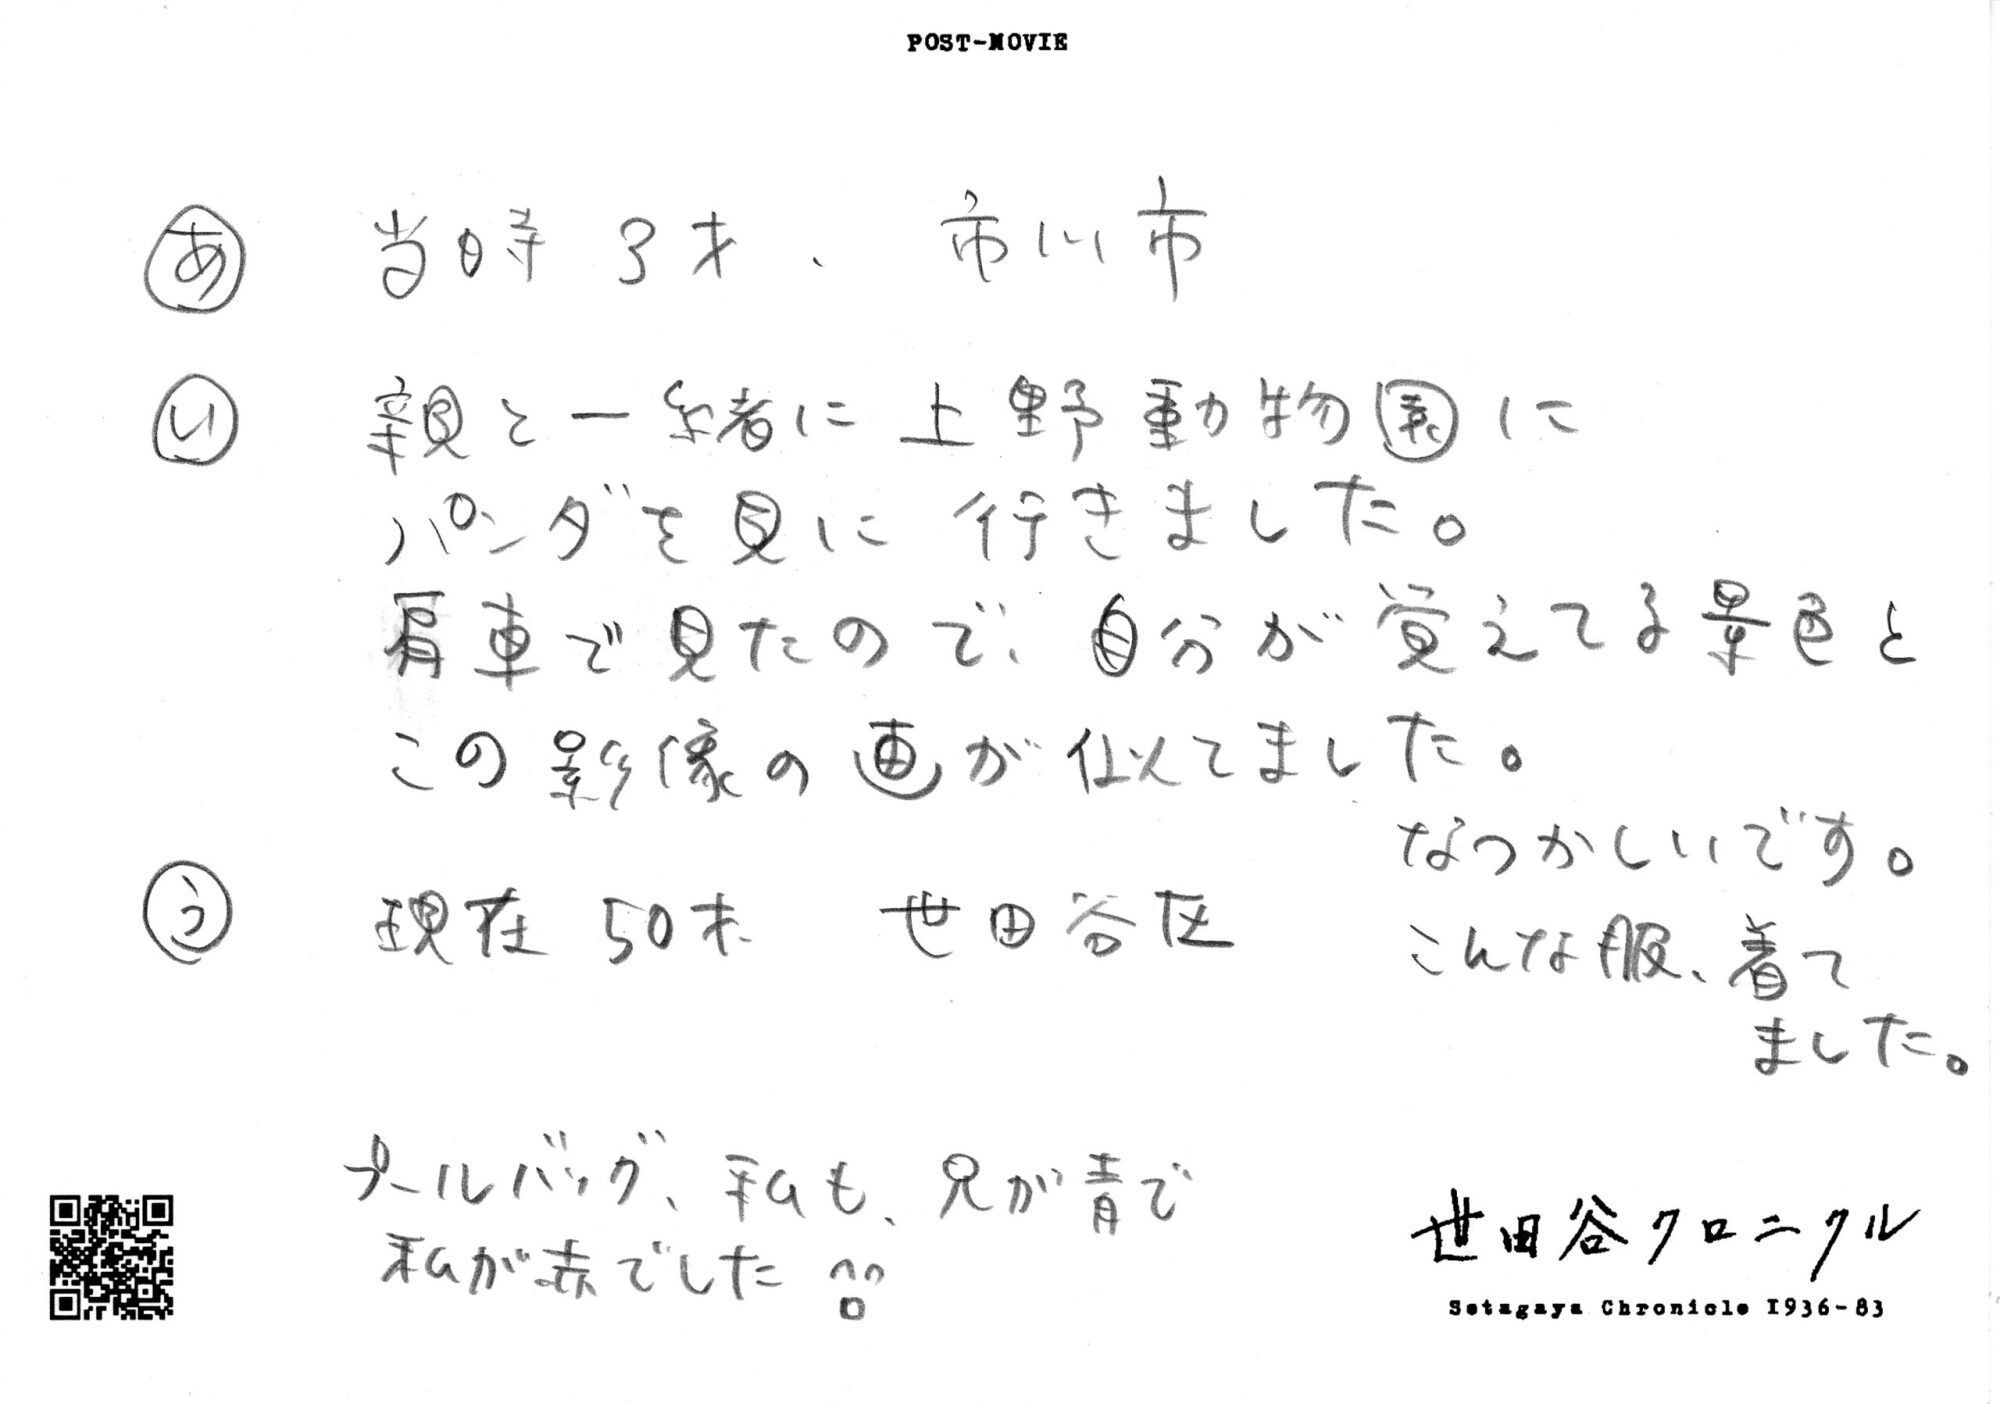 POST-MOVIE
あ 当時 3才、 市川市
い 親と一緒に上野動物園に
パンダを見に行きました。
肩車で見たので、自分が覚えてる景色と
この影像の画が似てました。
なつかしいです。
こんな服、着て
ました。
う 現在 50才 世田谷区
プールバッグ、私も、兄が青で
私が赤でした
世田谷クロニクル
Setagaya Chronicle 1936-83